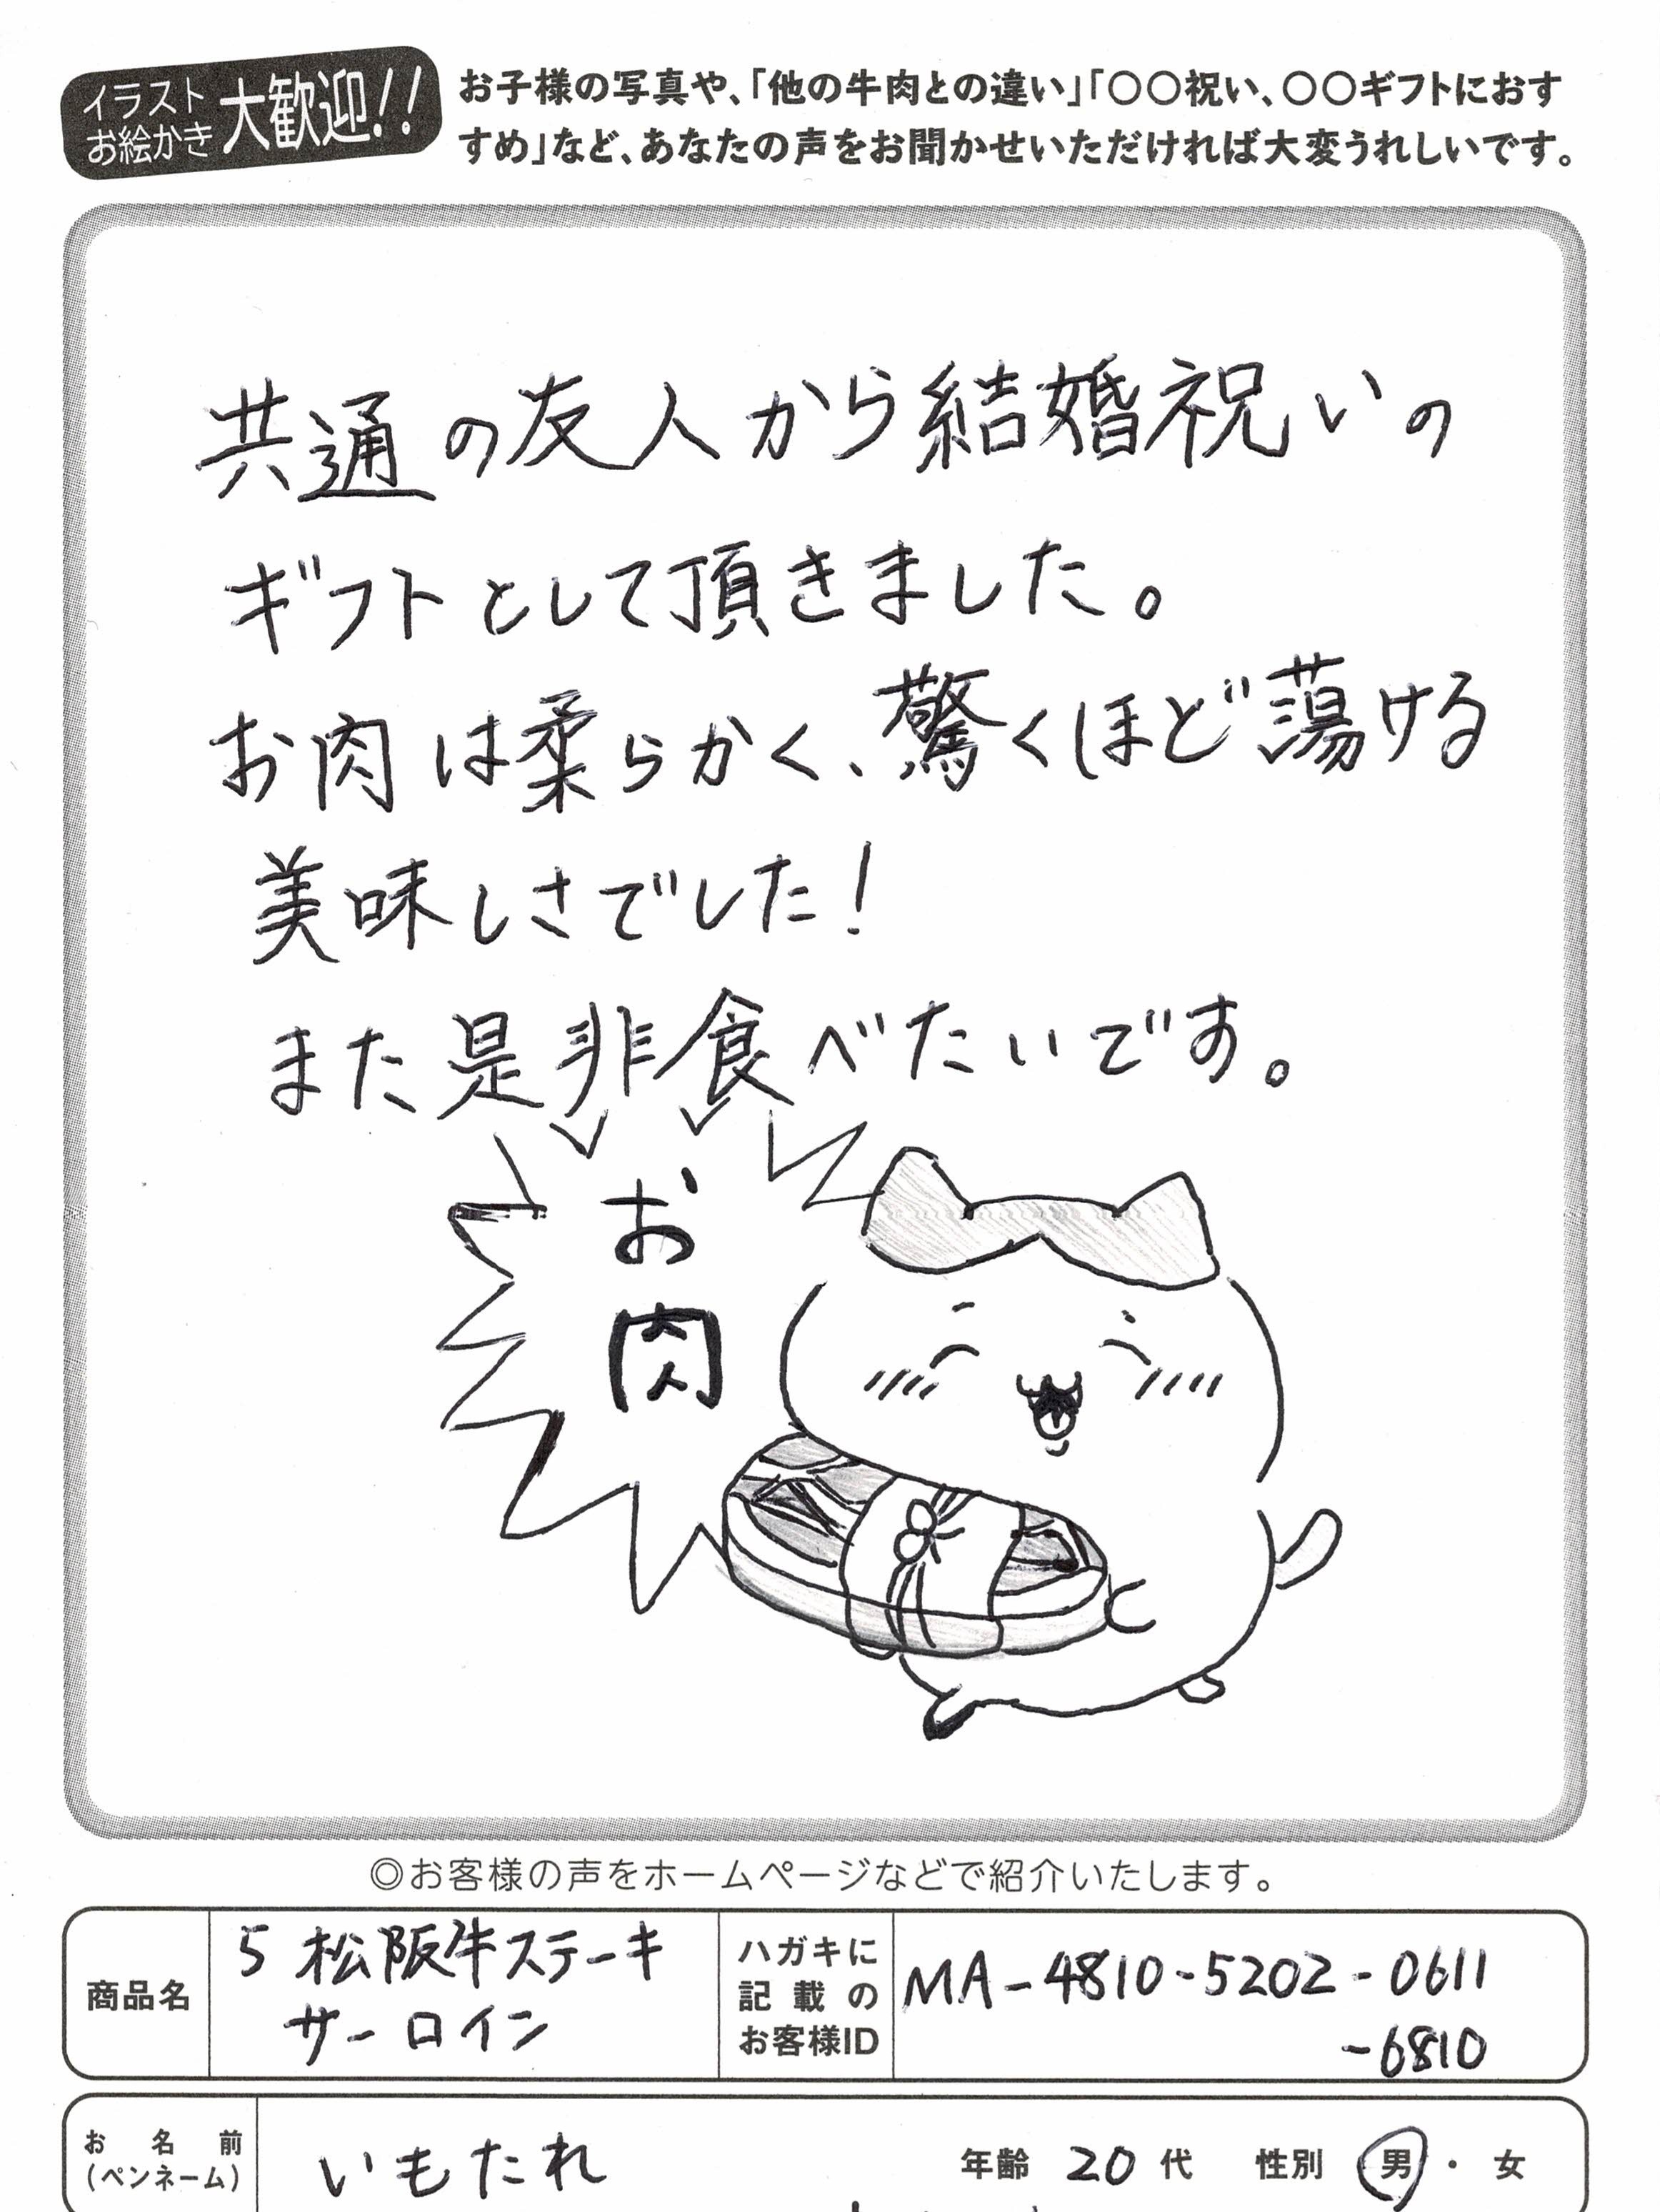 イラスト
お絵かき
大歓迎!!
お子様の写真や、「他の牛肉との違い」「〇〇祝い、〇〇ギフトにおす
すめ」など、あなたの声をお聞かせいただければ大変うれしいです。
共通の友人から結婚祝いの
ギフトとして頂きました。
お肉は柔らかく、驚くほど蕩ける
美味しさでした!
また是非食べたいです。
お
肉
◎お客様の声をホームページなどで紹介いたします。
商品名
5 松阪牛ステーキ
サーロイン
ハガキに
記載の
お客様ID
MA-4810-5202-0611
-6810
お名前
(ペンネーム)
いもたれ
年齢 20 代 性別 男・女